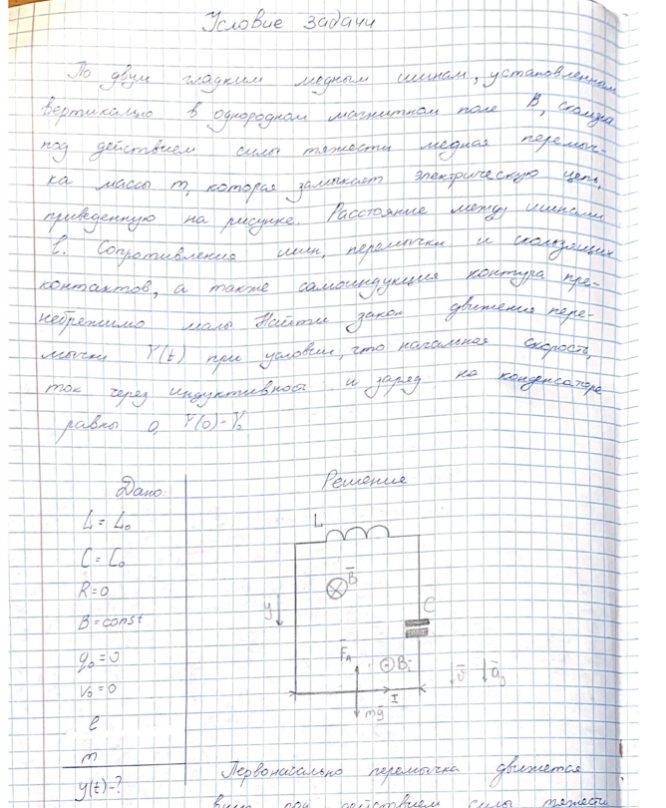 Условие задачи
По двум гладким медным шинам, установленным
вертикально в однородном магнитном поле B, скользит
под действием силы тяжести медная перемыч-
ка массы m, которая замыкает электрическую цепь,
приведенную на рисунке. Расстояние между шинами
l. Сопротивления шин, перемычки и скользящих
контактов, а также самоиндукция контура пре-
небрежимо малы. Найти закон движения пере-
мычки Y(t) при условии, что начальная скорость,
ток через индуктивность и заряд на конденсаторе
равны 0, Y(0)=Y₀
Дано:
L = L₀
C = C₀
R = 0
B = const
q₀ = 0
v₀ = 0
l
m
y(t)-?
Решение
L
B
y
C
F_A
B_i
I
mg
v
a_y
Первоначально перемычка движется
вниз под действием силы тяжести